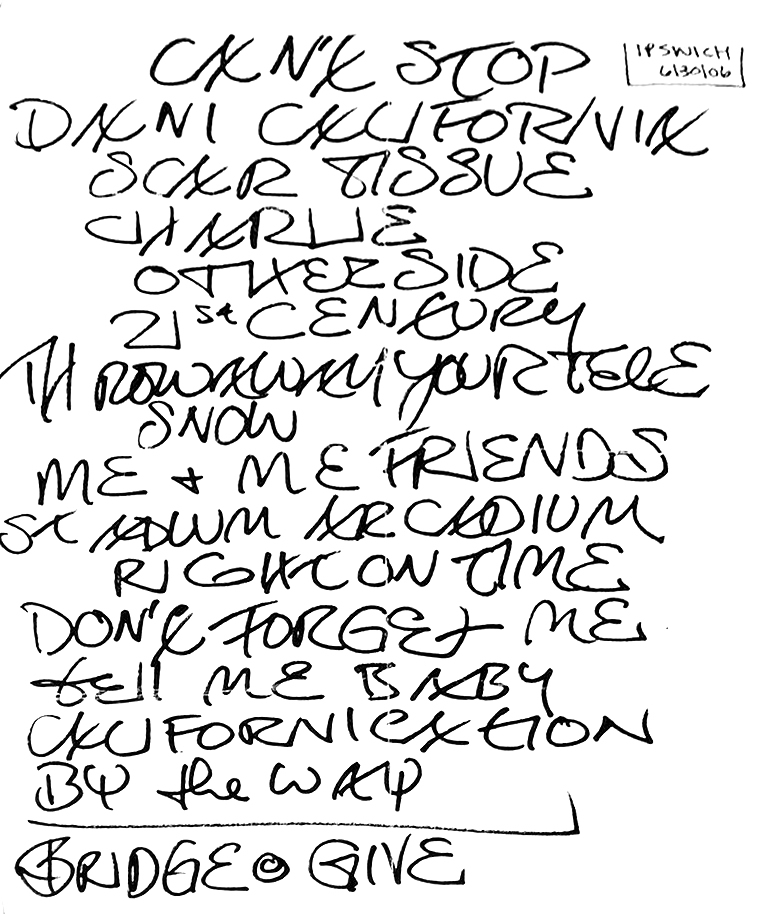 CAN'T STOP
IPSWICH
6/30/06
DANI CALIFORNIA
SCAR TISSUE
CHARLIE
OTHERSIDE
21st CENTURY
THROW AWAY YOUR TELE
SNOW
ME + ME FRIENDS
STADIUM ARCADIUM
RIGHT ON TIME
DON'T FORGET ME
tell ME BABY
CALIFORNICATION
BY the WAY
BRIDGE GIVE